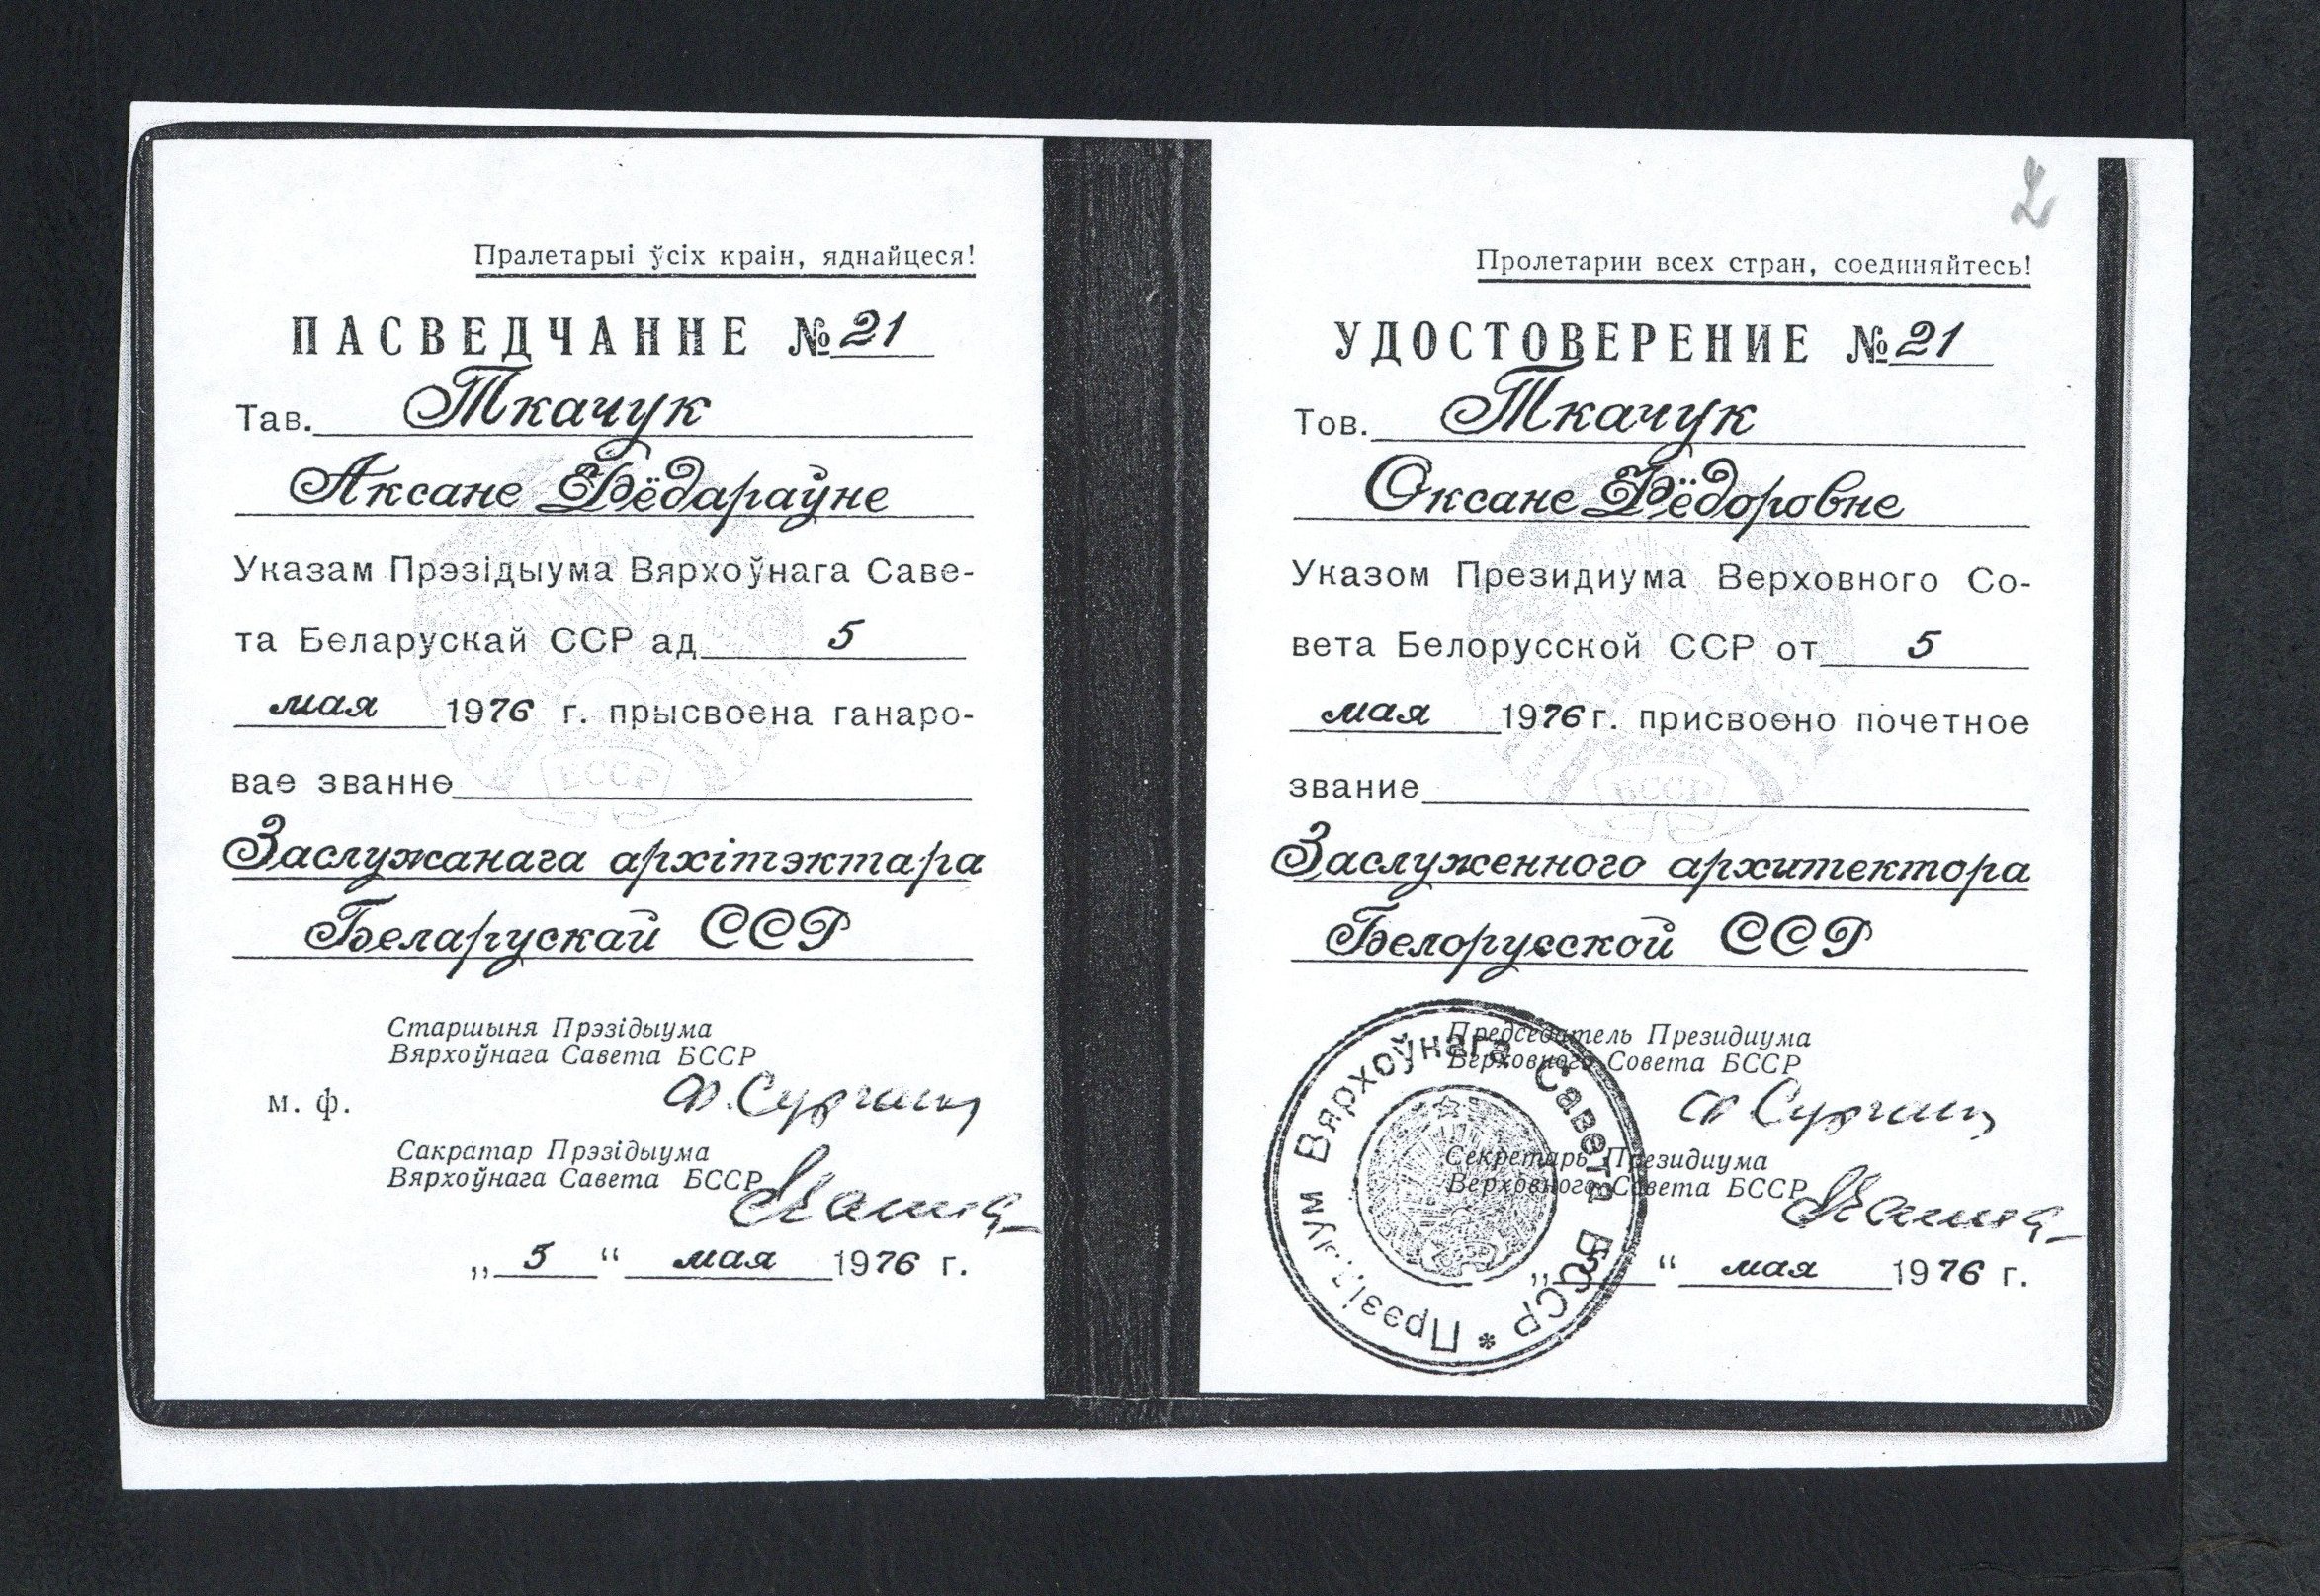 Пралетарыі ўсіх краін, яднайцеся!
ПАСВЕДЧАННЕ № 21
Тав. Ткачук
Аксане Фёдараўне
Указам Прэзідыума Вярхоўнага Саве-
та Беларускай ССР ад 5
мая 1976 г. прысвоена ганаро-
вае званне
Заслужанага архітэктара
Беларускай ССР
Старшыня Прэзідыума
Вярхоўнага Савета БССР
Ф. Сурганов
м. ф.
Сакратар Прэзідыума
Вярхоўнага Савета БССР
„ 5 “ мая 1976 г.
БССР
2
Пролетарии всех стран, соединяйтесь!
УДОСТОВЕРЕНИЕ № 21
Тов. Ткачук
Оксане Фёдоровне
Указом Президиума Верховного Со-
вета Белорусской ССР от 5
мая 1976 г. присвоено почетное
звание
Заслуженного архитектора
Белорусской ССР
Председатель Президиума
Верховного Совета БССР
Ф Сурганов
Секретарь Президиума
Верховного Совета БССР
„ 5 “ мая 1976 г.
БССР
Прэзідыум Вярхоўнага Савета БССР *